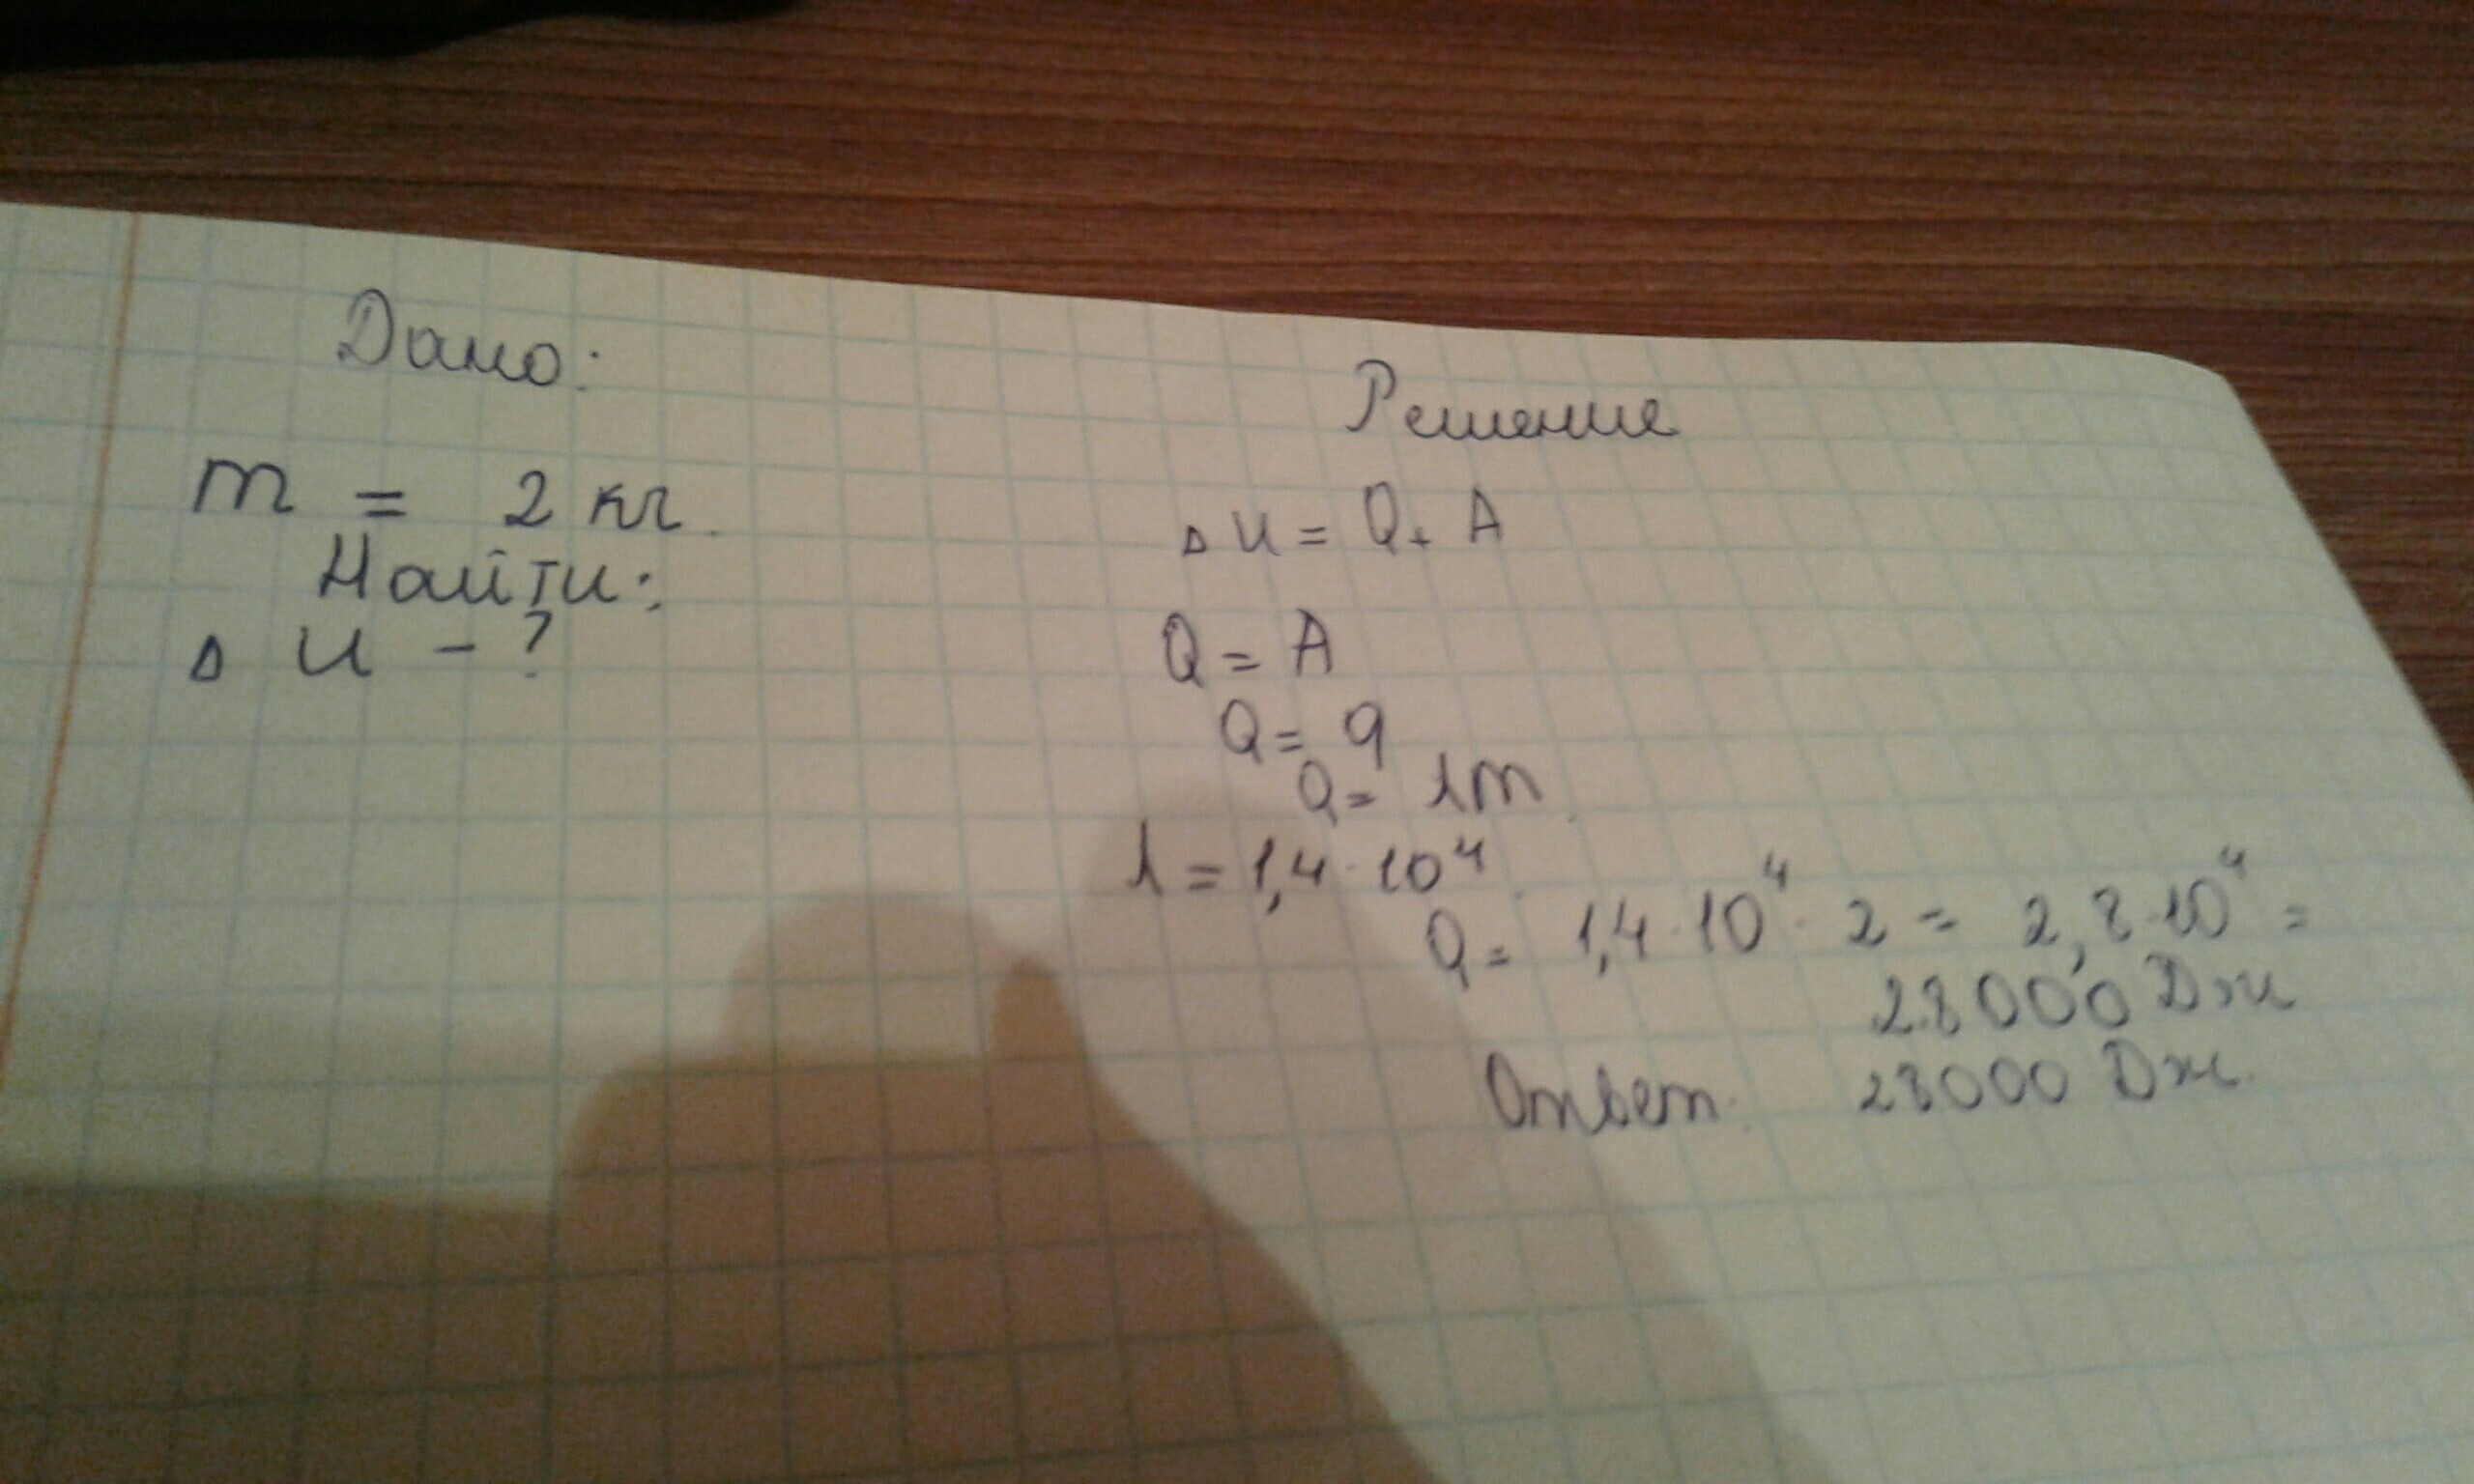 Дано:
m = 2 кг.
Найти:
Δ U - ?
Решение
Δ U = Q + A
Q = A
Q = q
Q = λm
λ = 1,4 · 10⁴
Q = 1,4 · 10⁴ · 2 = 2,8 · 10⁴ =
28000 Дж
Ответ: 28000 Дж.